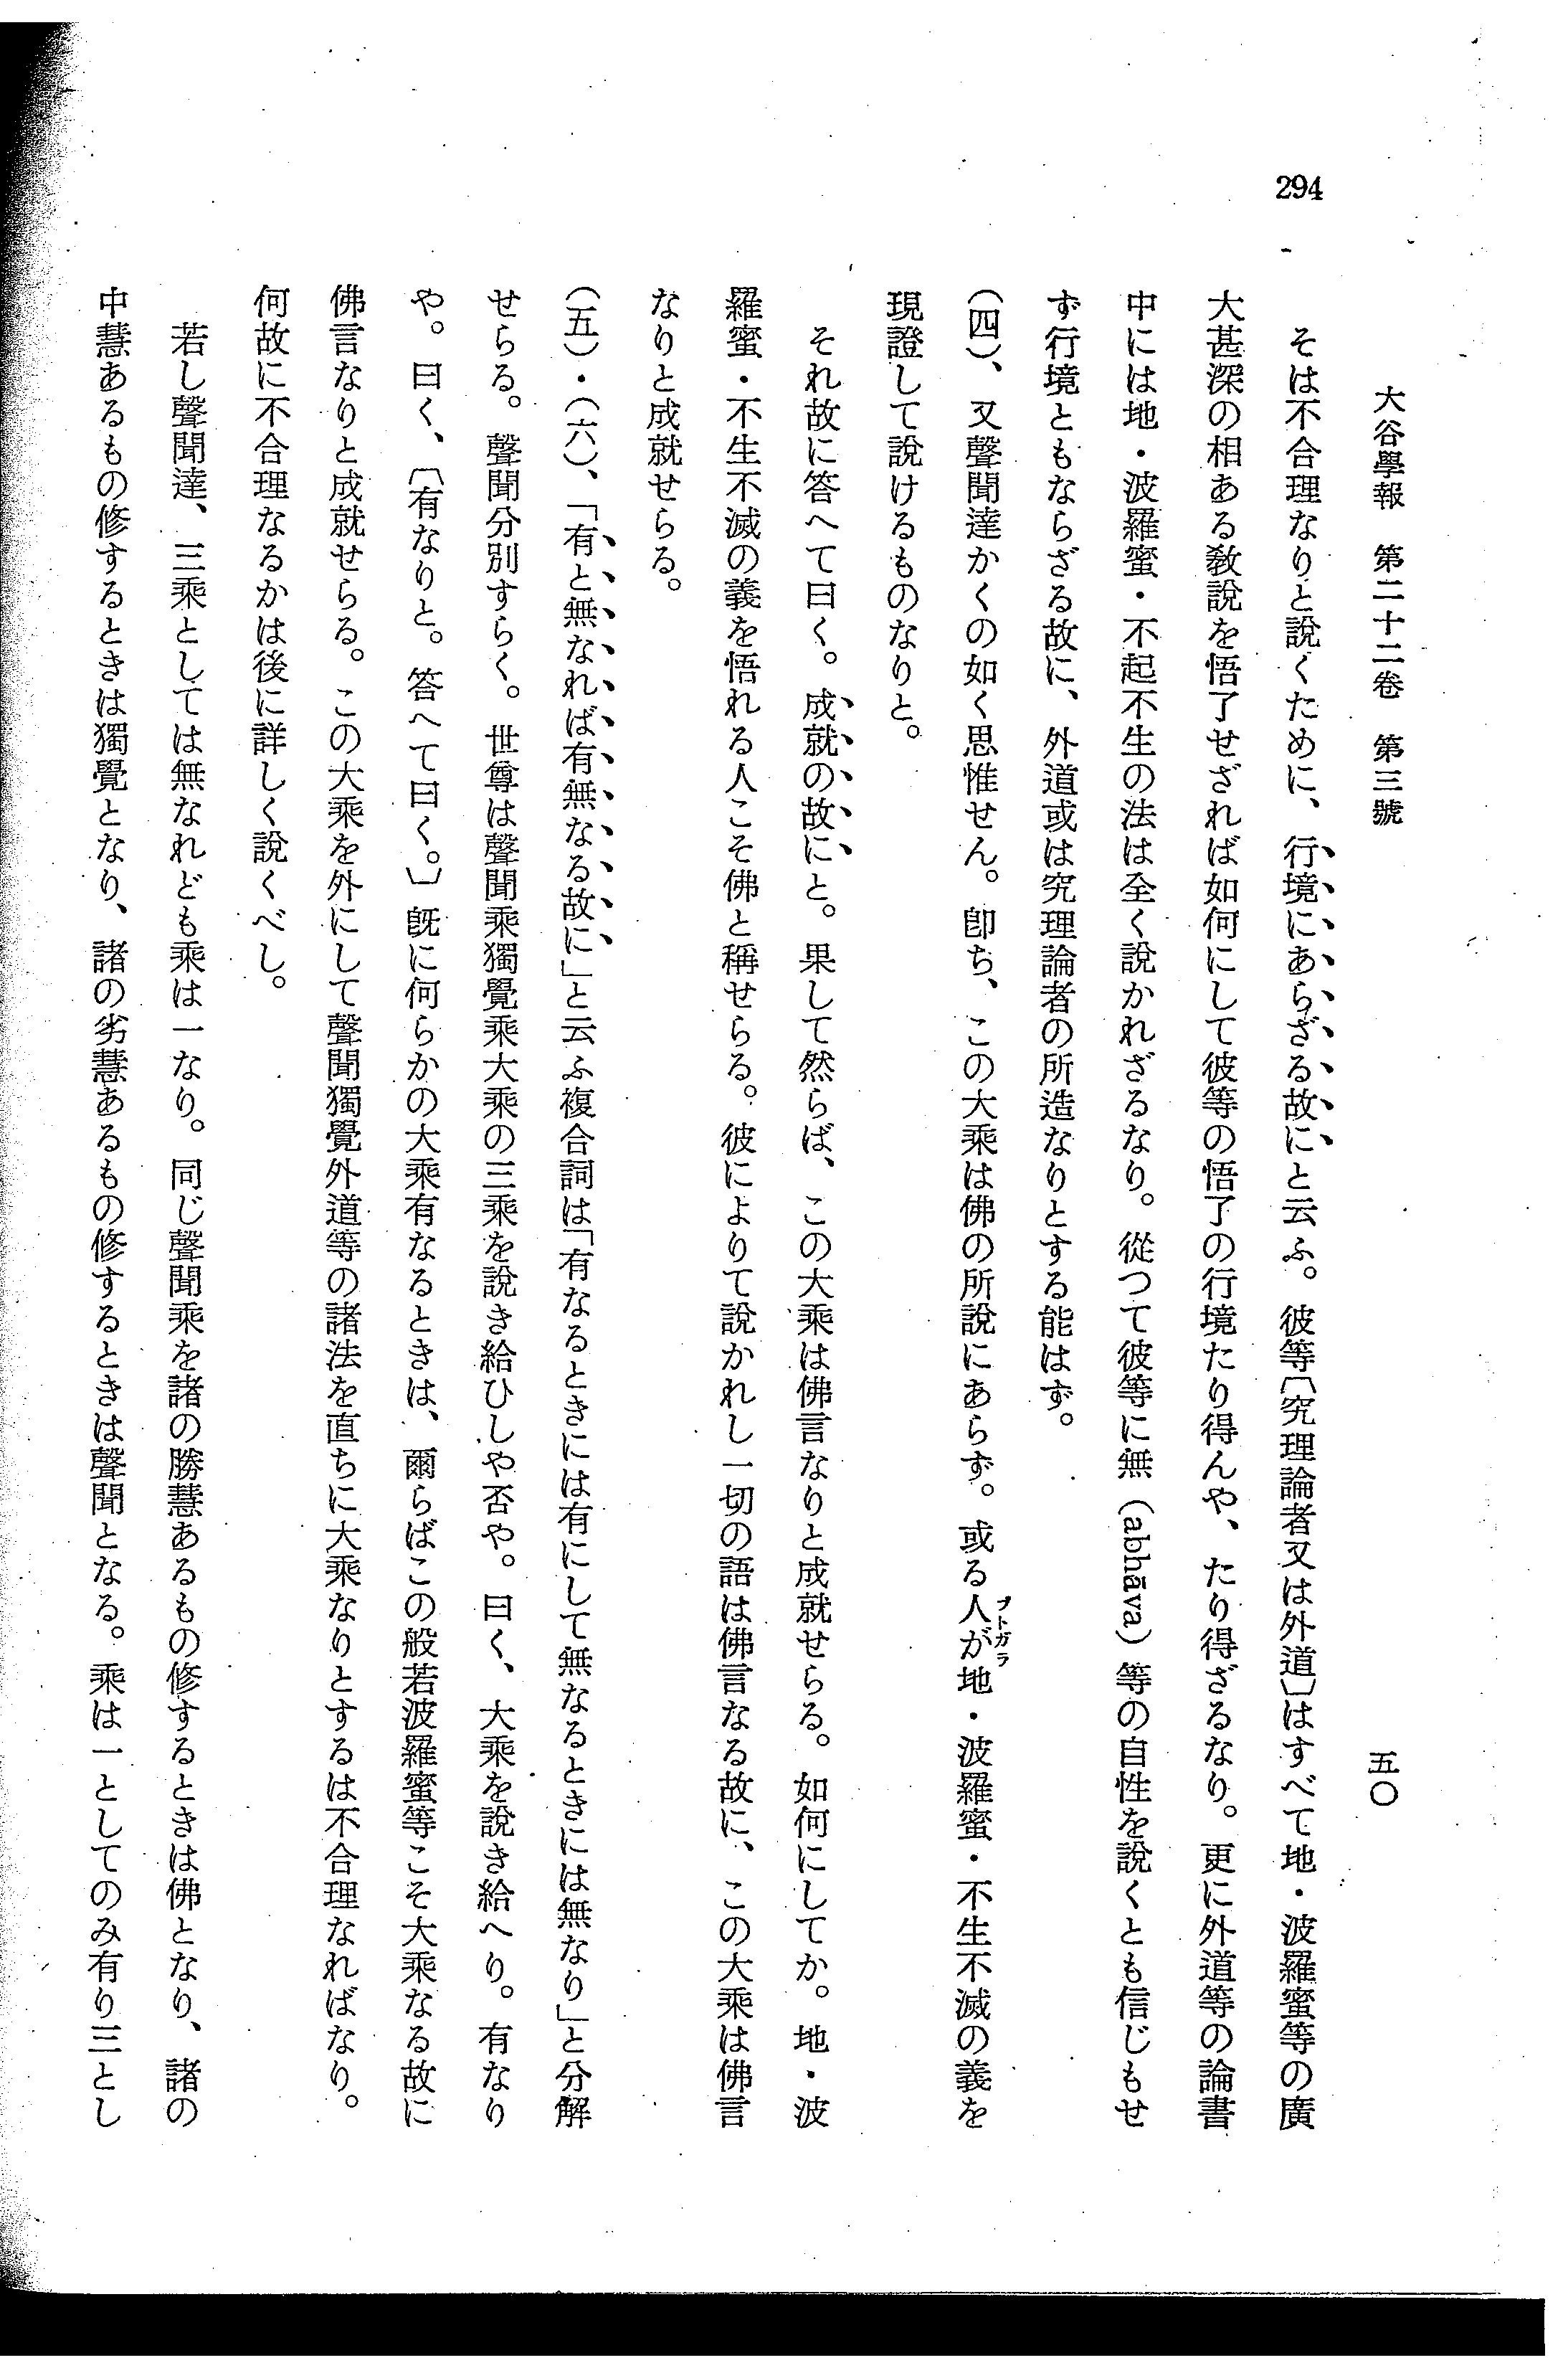 294
大谷學報　第二十二卷　第三號
五〇
そは不合理なりと說くために、行境にあらざる故にと云ふ。彼等〔究理論者又は外道〕はすべて地・波羅蜜等の廣
大甚深の相ある敎說を悟了せざれば如何にして彼等の悟了の行境たり得んや、たり得ざるなり。更に外道等の論書
中には地・波羅蜜・不起不生の法は全く說かれざるなり。從つて彼等に無（abhāva）等の自性を說くとも信じもせ
ず行境ともならざる故に、外道或は究理論者の所造なりとする能はず。
（四）、又聲聞達かくの如く思惟せん。卽ち、この大乘は佛の所說にあらず。或る人が地・波羅蜜・不生不滅の義を
ヲトガラ
現證して說けるものなりと。
それ故に答へて曰く。成就の故にと。果して然らば、この大乘は佛言なりと成就せらる。如何にしてか。地・波
羅蜜・不生不滅の義を悟れる人こそ佛と稱せらる。彼によりて說かれし一切の語は佛言なる故に、この大乘は佛言
なりと成就せらる。
（五）・（六）、「有と無なれば有無なる故に」と云ふ複合詞は「有なるときには有にして無なるときには無なり」と分解
せらる。聲聞分別すらく。世尊は聲聞乘獨覺乘大乘の三乘を說き給ひしや否や。曰く、大乘を說き給へり。有なり
や。曰く、〔有なりと。答へて曰く。〕旣に何らかの大乘有なるときは、爾らばこの般若波羅蜜等こそ大乘なる故に
佛言なりと成就せらる。この大乘を外にして聲聞獨覺外道等の諸法を直ちに大乘なりとするは不合理なればなり。
何故に不合理なるかは後に詳しく說くべし。
若し聲聞達、三乘としては無なれども乘は一なり。同じ聲聞乘を諸の勝慧あるもの修するときは佛となり、諸の
中慧あるもの修するときは獨覺となり、諸の劣慧あるもの修するときは聲聞となる。乘は一としてのみ有り三とし